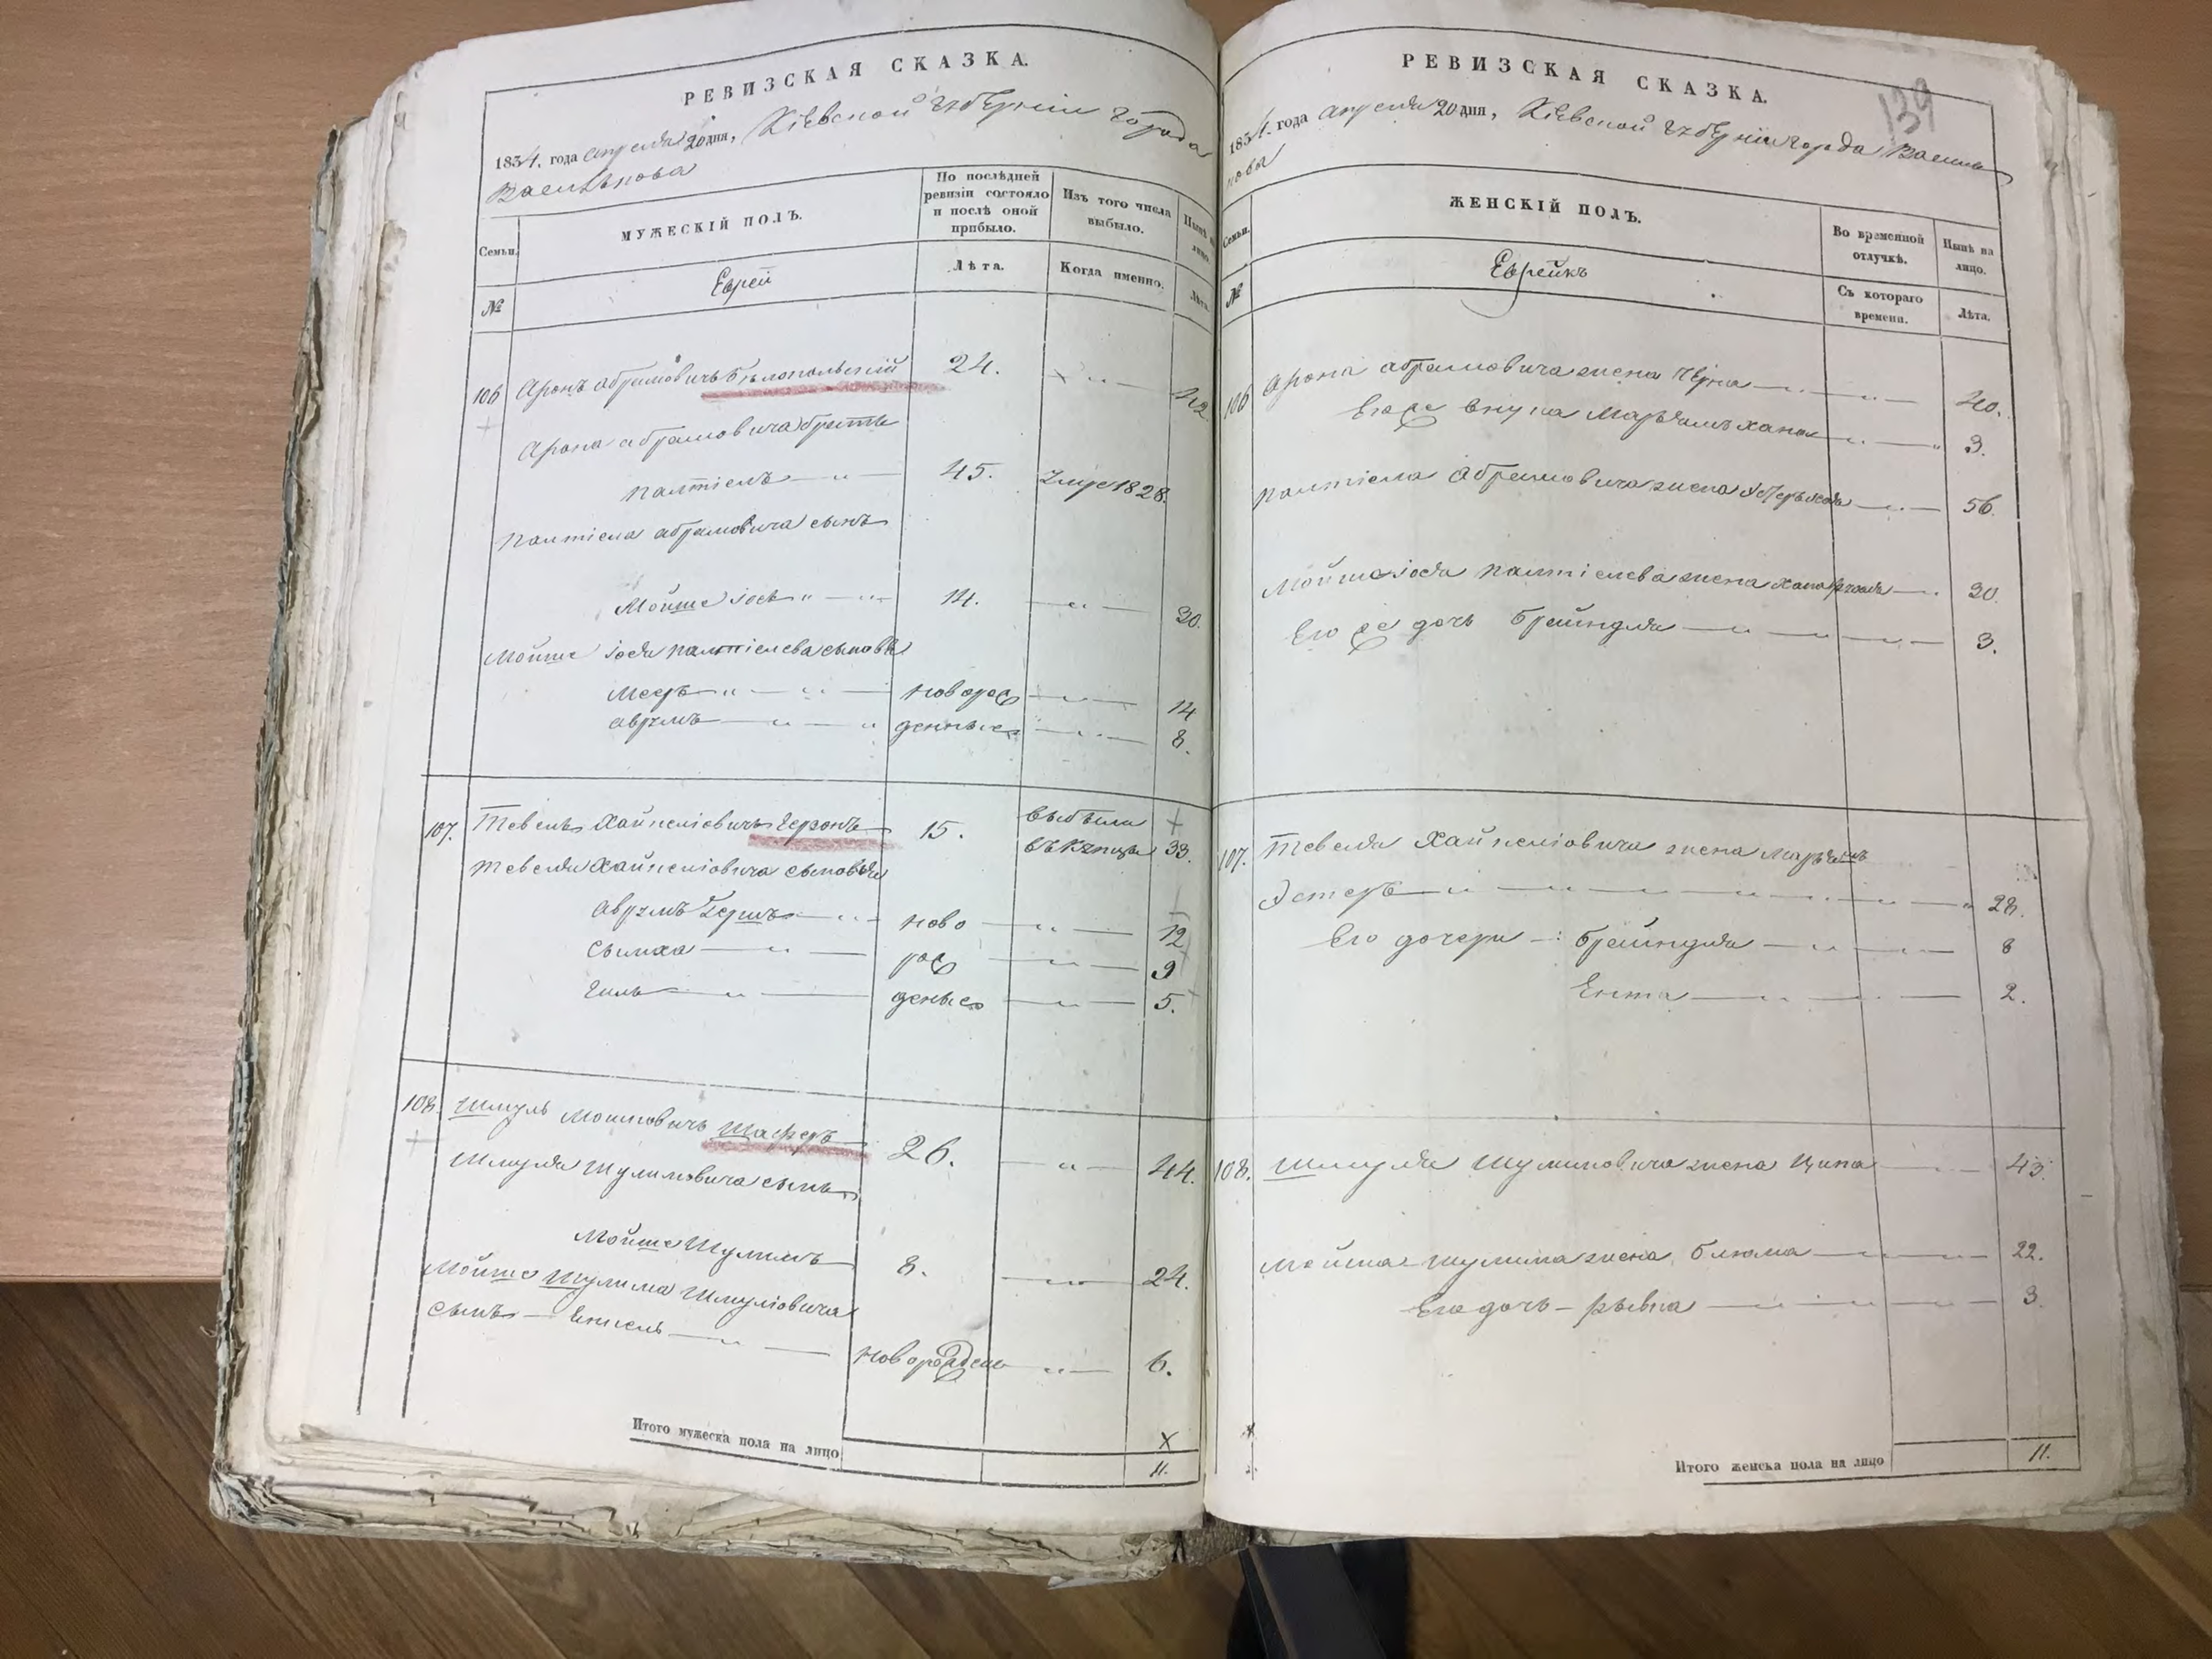 РЕВИЗСКАЯ СКАЗКА.
1834. года апреля 20 дня, Кіевской губерніи города
Василькова
Семьи.
МУЖЕСКІЙ ПОЛЪ.
По послѣдней ревизіи состояло и послѣ оной прибыло.
Изъ того числа выбыло.
Нынѣ на лицо.
№
Еврей
Лѣта.
Когда именно.
Лѣта.
106 Аронъ Абрамовичъ Бѣлопольскій 24. 42
Арона Абрамовича братъ
Палтіель 45. 1828.
Палтіела Абрамовича сынъ
Мойше Іось 14. 30.
Мойше Іося Палтіелева сыновья
Меер новорож 14
Аврумъ денные 8.
107. Тевель Хайкеліовичъ Герзонъ 15. выбыли
въ купцы 33.
Тевеля Хайкеліовича сыновья
Аврумъ Герш ново 12
Сымха рож 9
Гиль деные 5.
108. Шмуль Мошковичъ Шаферъ 26. 44.
Шмуля Шулимовича сынъ
Мойше Шулимъ 8. 24.
Мойше Шулима Шмуліовича
сынъ новорожден 6.
Итого мужеска пола на лицо
11.
139
РЕВИЗСКАЯ СКАЗКА.
1834. года апреля 20 дня, Кіевской губерніи города Василь
кова
Семьи.
ЖЕНСКІЙ ПОЛЪ.
Во временной отлучкѣ.
Нынѣ на лицо.
№
Еврейкъ
Съ котораго времени.
Лѣта.
106 Арона Абрамовича жена Черна 40.
Егоже внука Марьямъ Хана 3.
Палтіела Абрамовича жена 56.
Мойше Іося Палтіелева жена Хана 30.
Его же дочь Брайндля 3.
107. Тевеля Хайкеліовича жена Марьямъ
Эстеръ 28.
Его дочери : Брайндля 8
Ента 2.
108. Шмуля Шулимовича жена Ципа 43
Мойша Шулима жена Блюма 22.
Его дочь – Рывка 3.
Итого женска пола на лицо 11.